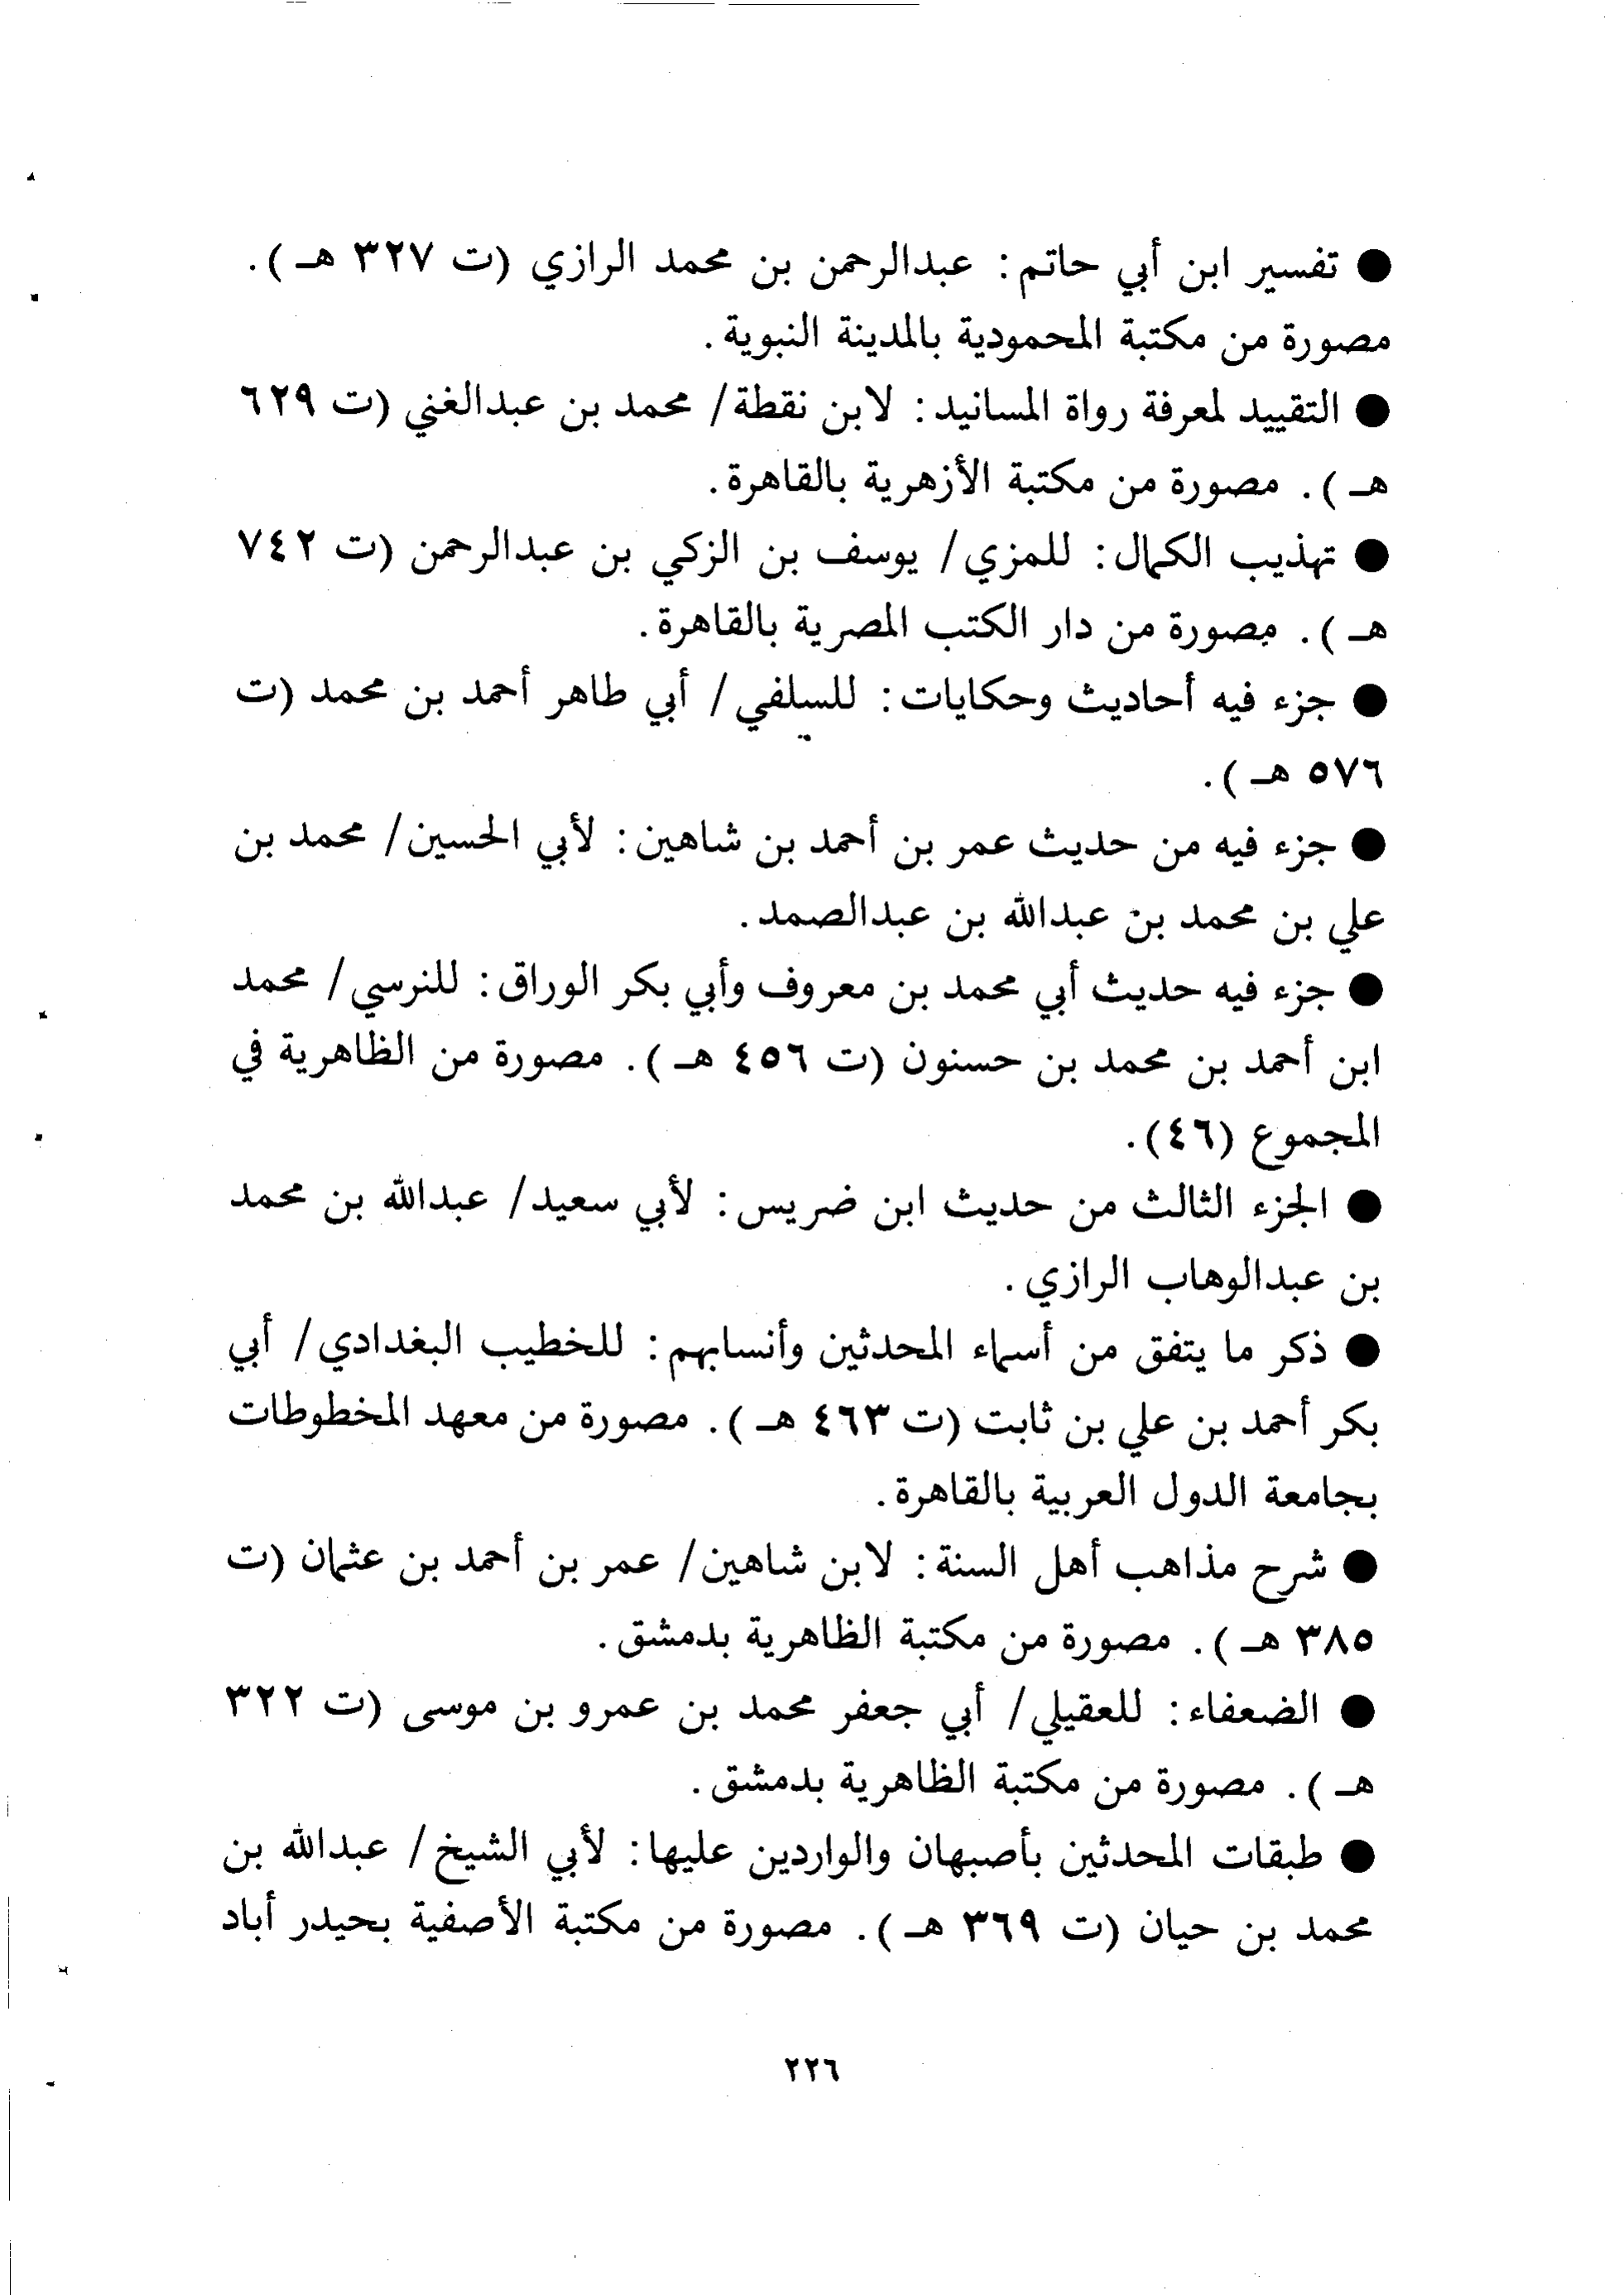 ● تفسير ابن أبي حاتم: عبدالرحمن بن محمد الرازي (ت ٣٢٧ هـ).
مصورة من مكتبة المحمودية بالمدينة النبوية.
● التقييد لمعرفة رواة المسانيد: لابن نقطة/ محمد بن عبدالغني (ت ٦٢٩
هـ). مصورة من مكتبة الأزهرية بالقاهرة.
● تهذيب الكمال: للمزي/ يوسف بن الزكي بن عبدالرحمن (ت ٧٤٢
هـ). مصورة من دار الكتب المصرية بالقاهرة.
● جزء فيه أحاديث وحكايات: للسلفي/ أبي طاهر أحمد بن محمد (ت
٥٧٦ هـ).
● جزء فيه من حديث عمر بن أحمد بن شاهين: لأبي الحسين/ محمد بن
علي بن محمد بن عبدالله بن عبدالصمد.
● جزء فيه حديث أبي محمد بن معروف وأبي بكر الوراق: للنرسي/ محمد
ابن أحمد بن محمد بن حسنون (ت ٤٥٦ هـ). مصورة من الظاهرية في
المجموع (٤٦).
● الجزء الثالث من حديث ابن ضريس: لأبي سعيد/ عبدالله بن محمد
بن عبدالوهاب الرازي.
● ذكر ما يتفق من أسماء المحدثين وأنسابهم: للخطيب البغدادي/ أبي
بكر أحمد بن علي بن ثابت (ت ٤٦٣ هـ). مصورة من معهد المخطوطات
بجامعة الدول العربية بالقاهرة.
● شرح مذاهب أهل السنة: لابن شاهين/ عمر بن أحمد بن عثمان (ت
٣٨٥ هـ). مصورة من مكتبة الظاهرية بدمشق.
● الضعفاء: للعقيلي/ أبي جعفر محمد بن عمرو بن موسى (ت ٣٢٢
هـ). مصورة من مكتبة الظاهرية بدمشق.
● طبقات المحدثين بأصبهان والواردين عليها: لأبي الشيخ/ عبدالله بن
محمد بن حيان (ت ٣٦٩ هـ). مصورة من مكتبة الأصفية بحيدر أباد
٢٢٦